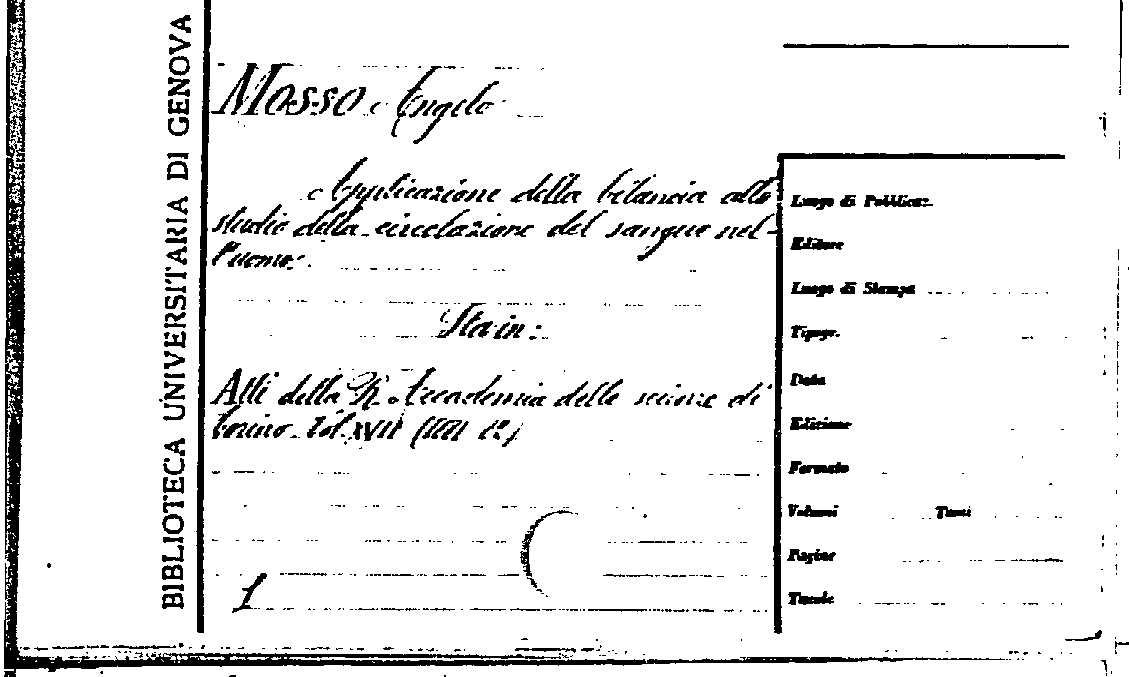 BIBLIOTECA UNIVERSITARIA DI GENOVA
Mosso Angelo
Applicazione della bilancia allo
studio della circolazione del sangue nel-
l'uomo.
Sta in:
Atti della R. Accademia delle scienze di
Torino. Vol. XVII (1881-82)
1
Luogo di Pubblicaz.
Editore
Luogo di Stampa
Tipogr.
Data
Edizione
Formato
Volumi Tomi
Pagine
Tavole